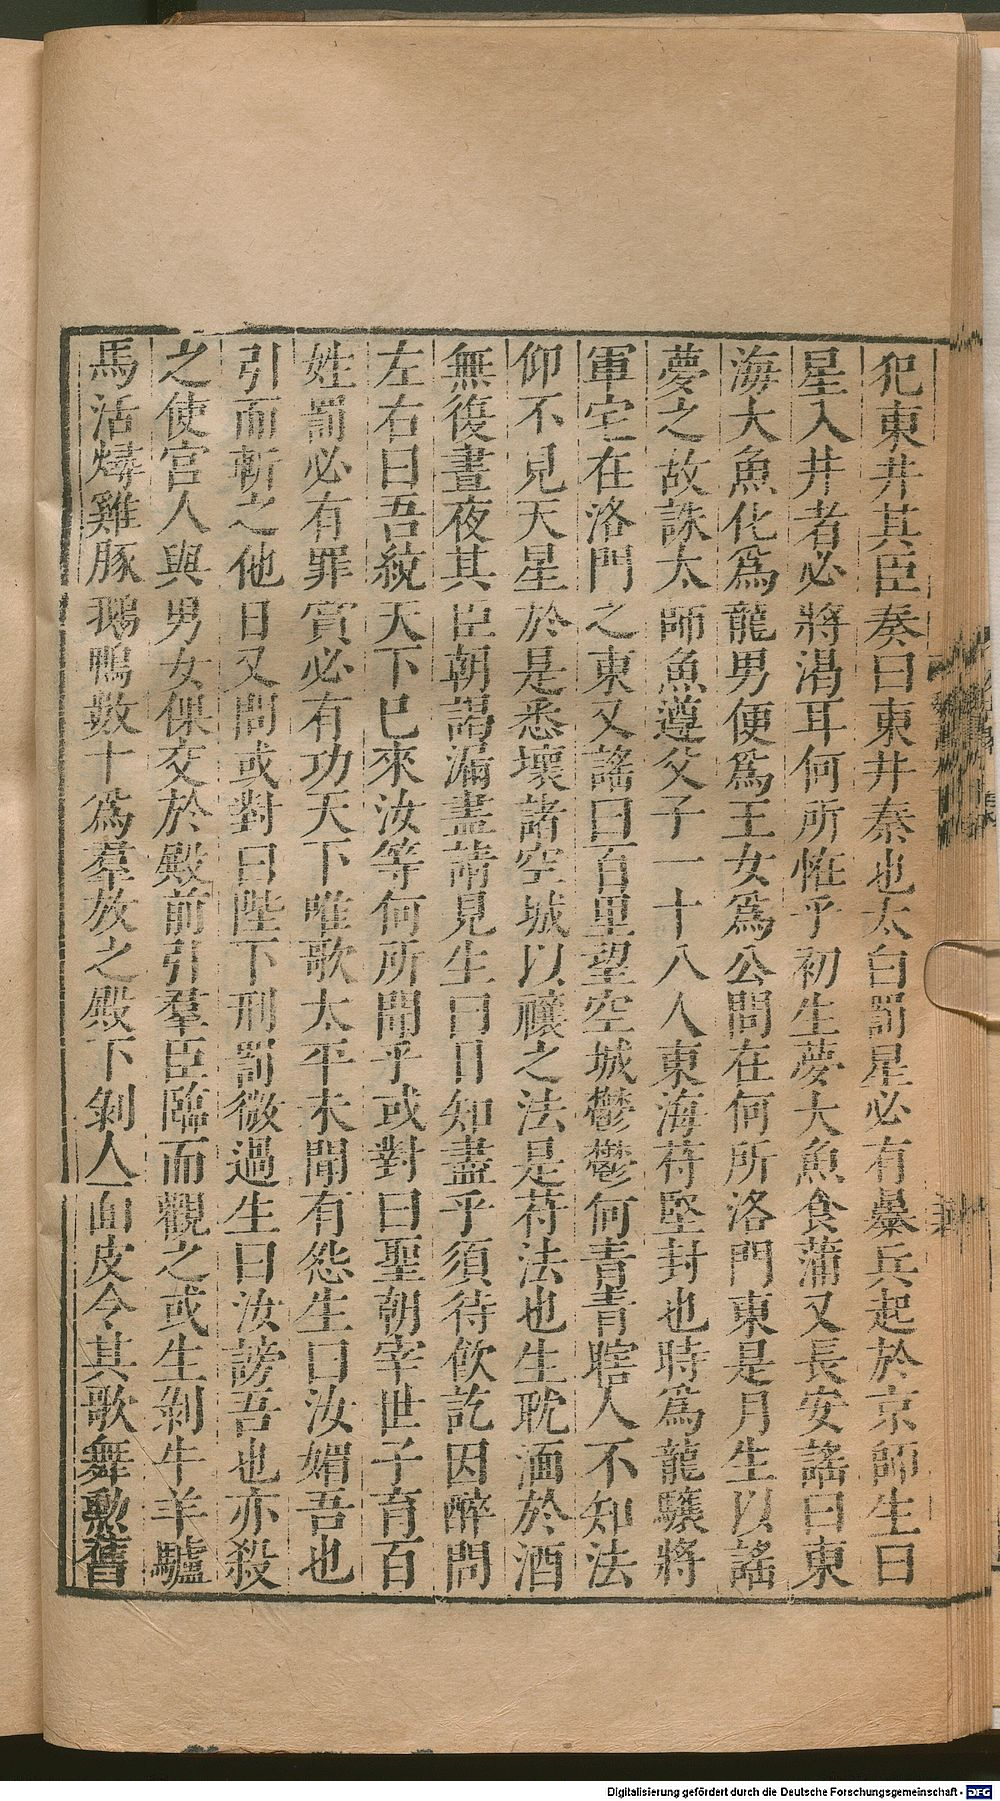 犯東井其臣奏曰東井秦也太白罰星必有暴兵起於京師生曰
星入井者必將渴耳何所恠乎初生夢大魚食蒲又長安謠曰東
海大魚化為龍男便為王女為公問在何所洛門東是月生以謠
夢之故誅太師魚遵父子一十八人東海苻堅封也時為龍驤將
軍宅在洛門之東又謠曰百里望空城鬱鬱何青青瞎人不知法
仰不見天星於是悉壞諸空城以禳之法是苻法也生耽湎於酒
無復晝夜其臣朝謁漏盡請見生曰日知盡乎須待飲訖因醉問
左右曰吾統天下已來汝等何所聞乎或對曰聖朝宰世子育百
姓罰必有罪賞必有功天下唯歌太平未聞有怨生曰汝媚吾也
引而斬之他日又問或對曰陛下刑罰微過生曰汝謗吾也亦殺
之使宮人與男女倮交於殿前引羣臣臨而觀之或生剝牛羊驢
馬活燖雞豚鵝鴨數十為羣放之殿下剝人面皮令其歌舞勲舊
Digitalisierung gefördert durch die Deutsche Forschungsgemeinschaft - DFG